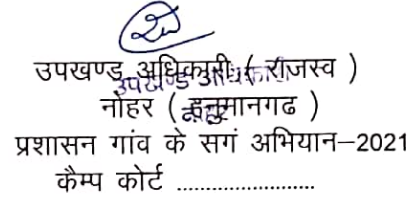 उपखण्ड अधिकारी ( राजस्व )
नोहर ( हनुमानगढ )
प्रशासन गांव के सगं अभियान–2021
कैम्प कोर्ट ........................